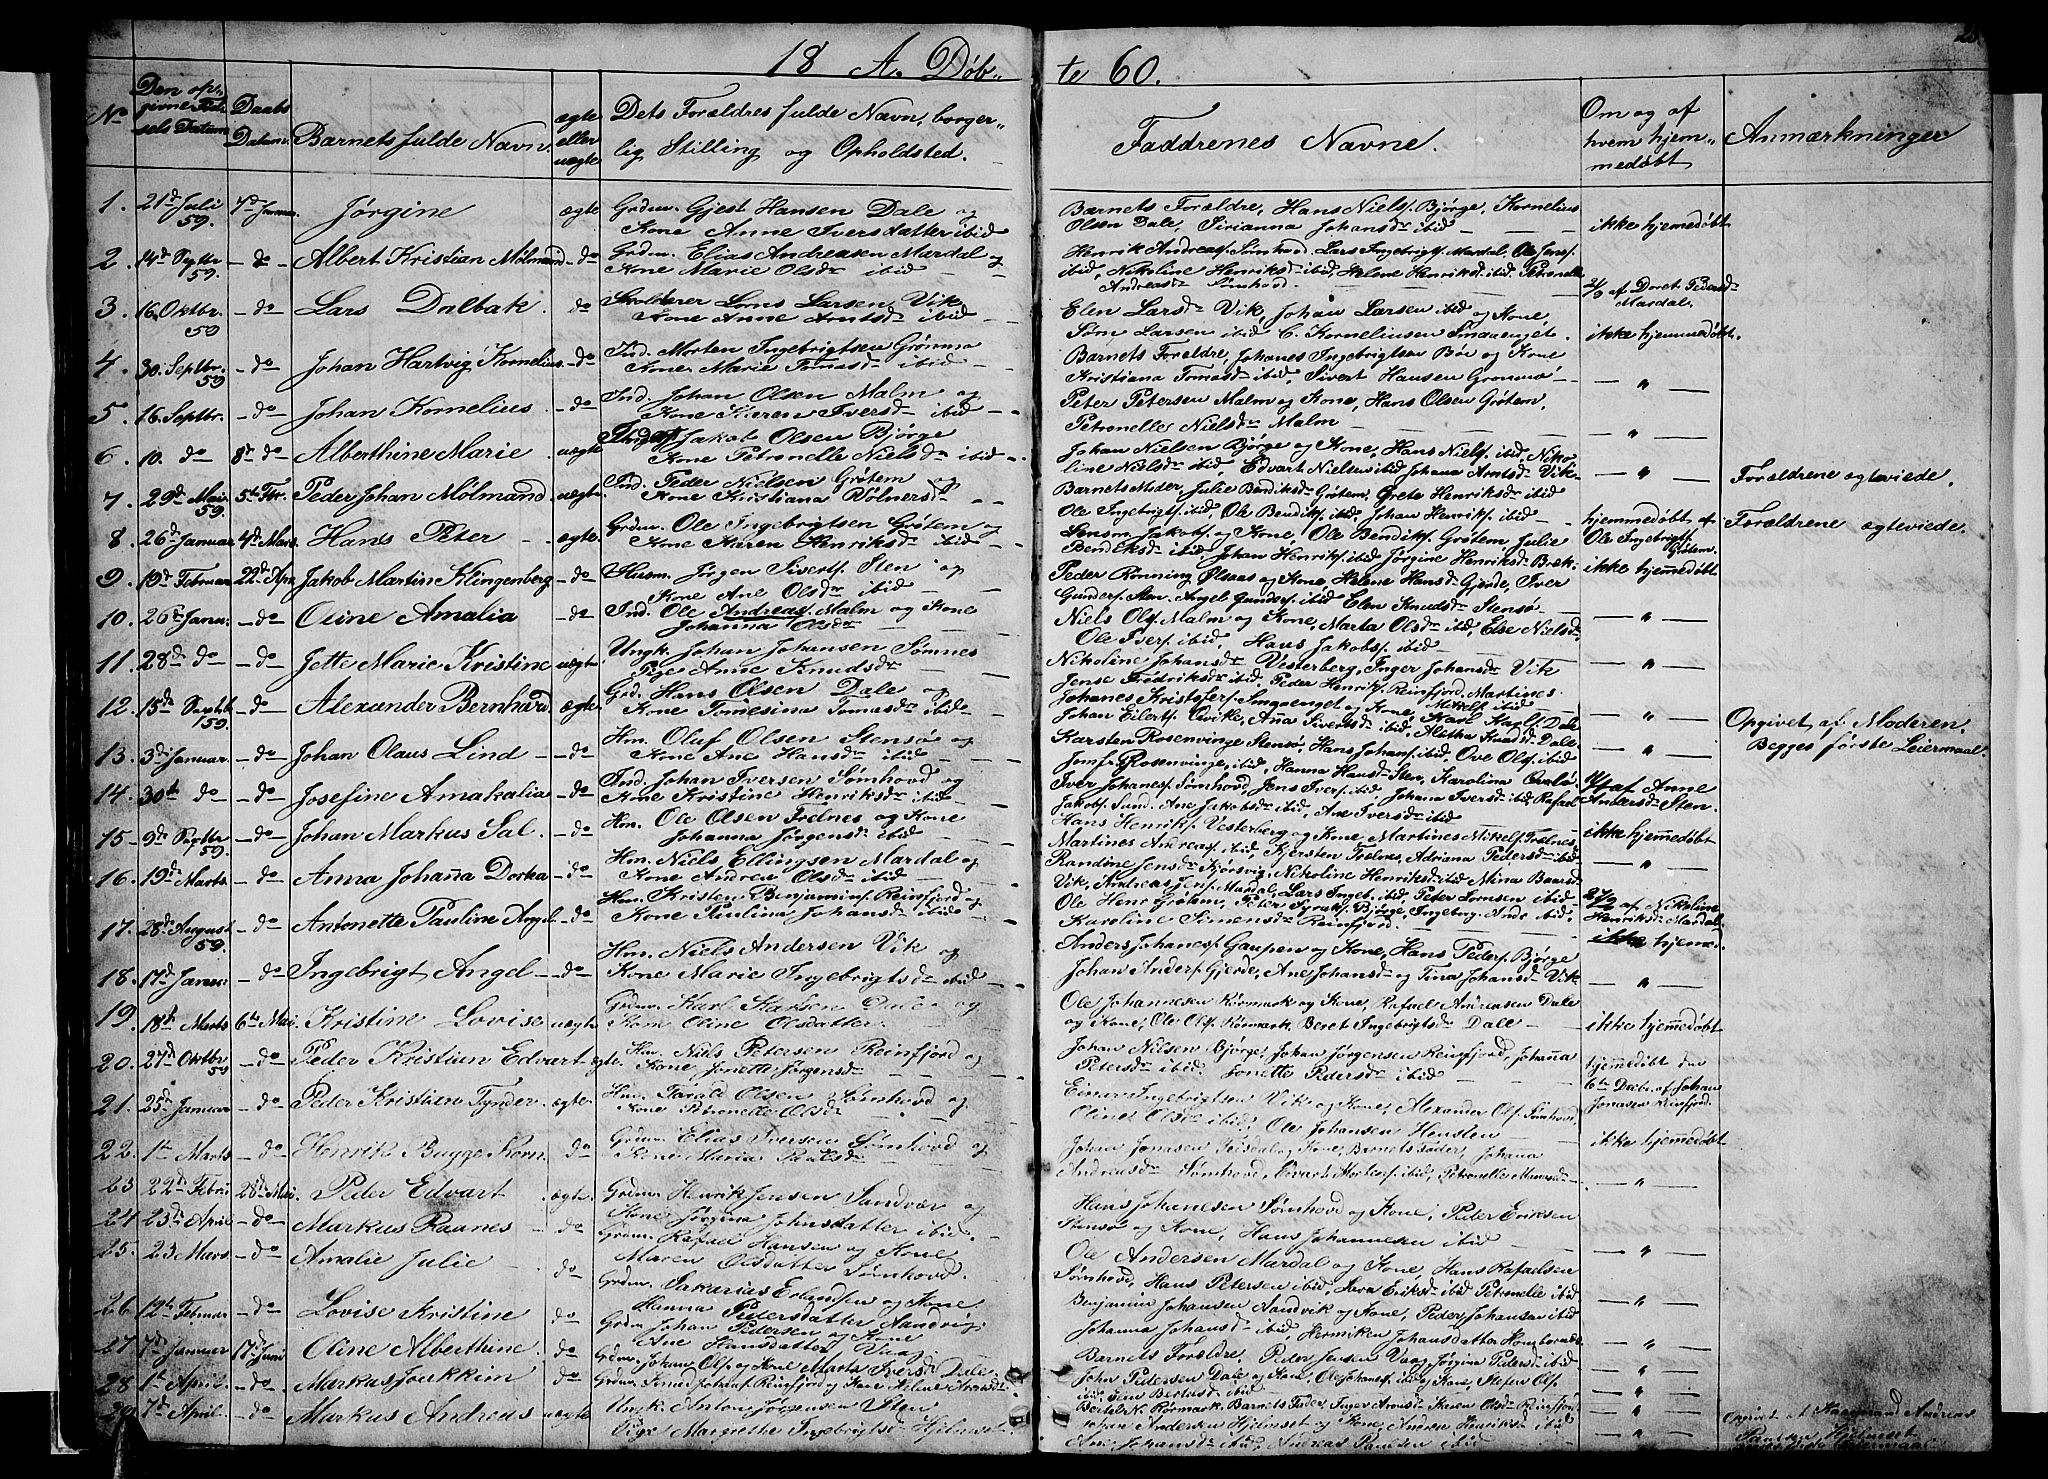 18 A. Døb-
te 60.
No
Den op-
givne Fød-
sels Datum
Daabs
Datum.
Barnets fulde Navn.
ægte
eller
uægte
Dets Forældres fulde Navn, borger-
lig Stilling og Opholdsted.
Faddrenes Navne.
Om og af
hvem hjem-
medøbt
Anmærkninger
1. 21d Juli 59. 7d Januar Jørgine ægte
Grdm. Gjest Hansen Dale og
Kone Anne Iversdatter ibid
Barnets Forældre, Hans Niels. Bjørge, Kornelius
Olsen Dale, Sirianna Johansdr ibid
ikke hjemedøbt
2. 14d Septbr 59. - do - Albert Kristian Mölmand - do
Grdm. Elias Andreasen Mardal og
Kone Marie Olsdr ibid
Henrik Andreas. Sømhovd. Lars Ingebrigts. Mardal, Ole Jens.
ibid, Nikoline Henriksdr ibid, Helene Henriksd. ibid, Petronelle
Andreasdr Sømhovd.
2/9 af Doret Pedersdr
Mardal.
3. 16 Oktbr. 59 - do - Lars Dalbak. do
Larsen Vik
Kone Anne Arntsdr ibid
Elen Larsdr Vik, Johan Larsen ibid og Kone,
Larsen ibid C. Korneliusen Smaaenget.
ikke hjemmedøbt.
4. 30. Septbr. 59 - do - Johan Hartvig Kornelius. - do
Ind. Morten Ingebrigtsen Grønma
Kone Marie Tomasdr ibid
Barnets Forældre, Johanes Ingebrigtsen Böe og Kone
Kristiana Tomasdr ibid, Sivert Hansen
- " -
5. 16 Septbr. - do - Johan Kornelius. - do
Ind. Johan Olsen Malm og
Kone Karen Iversdr ibid
Peter Petersen Malm og Kone, Hans Olsen Grøtem,
Petronelle Nielsdr Malm
- " -
6. 10. do 8d do Alberthine Marie uægte
Jakob Olsen Bjørge
Kone Petronelle Nielsdr ibid
Johan Nielsen Bjørge og Kone, Hans Niels. ibid, Niko-
line Nielsdr ibid, Edvart Nielsen ibid Johana Arntsdr Vik.
- " -
7. 29d Mai 59. 5t Fbr. Peder Johan Mölmand uægte
Ind. Peder Nielsen Grøtem og
Kone Kristiana
Barnets Moder, Julie Bendiksdr Grøtem, Grete Henriksdr ibid
Ole Ingebrigts. ibid, Ole Bendiks. ibid, Johan Henriks. ibid
Forældrene ægteviede.
8. 26d Januar 4d Mars. Hans Peter ægte
Grdm. Ole Ingebrigtsen Grøtem og
Kone Karen Henriksdr ibid
Jakobs. og Kone, Ole Bendiks. Grøtem Julie
Bendiksdr ibid, Johan Henriks. ibid Jørgine Henriksdr Bræk.
hjemmedøbt af
Ole Ingebrigts.
Grøtem.
Forældrene ægteviede.
9. 19d Februar 22d Apr Jakob Martin Klingenberg - do
Husm. Jørgen Siverts. Sten og
Kone Ane Olsdr ibid
Peder Rönning Ølsaas og Kone, Helene Hansdr Gjerde, Iver
Gunders. Sten. Angel Gunders. ibid Elen Knudsdr Stensø
ikke hjemmedøbt
10. 26d Janu: - do Oline Amalia - do
Ind. Ole Andreas. Malm og Kone
Johanna Olsdr
Niels Ols. Malm og Kone, Marta Olsdr ibid, Else Nielsdr.
Ole Ivers. ibid, Hans Jakobs. ibid
- " -
11. 28d do - do - Jette Marie Kristine uægte
Ungk. Johan Johansen Sømnes
Pige Anne Knudsdr
Nikoline Johansdr Vesterberg, Inger Johansdr Vik
Jense Fredriksdr ibid, Peder Henriks. Reinfjord. Martines
Mikels. ibid
- " -
12. 15d Septbr 159. - do - Alexander Bernhard ægte
Grd. Hans Olsen Dale og
Kone Tomesina Tomasdr ibid
Johanes Kristofers. Smaaenget og Kone, Karl Karls. Dale
Johan Eilerts. Qvikle, Ana Sivertsdr ibid, Alitha Knudsdr Dale
- " -
Opgivet af Moderen.
Begges første Leiermaal.
13. 3di Januar. - do - Johan Olaus Lind - do
Hm. Oluf Olsen Stensø og
Kone Ane Hansdr ibid
Karsten Rosenvinge Stensø, Hans Johans. ibid, Ove Ols. ibid
Jomfr. Rosenvinge, ibid, Hanna Hansdr Sten, Karolina
- " -
14. 30te do - do - Josefine Amakalia - do
Ind. Johan Iversen Sømhovd og
Kone Kristine Henriksdr ibid
Iver Johanes. Sømhovd, Jens Ivers. ibid, Johana Iversdr ibid, Rafael
Jakobs. Sund. Ane Jakobsdr ibid, Ane Iversdr ibid
af Anne
Andersdr Sten.
15. 9d Septbr 59. - do - Johan Markus Sal. - do
Hm. Ole Olsen Trælnes og Kone
Johanna Jørgensdr ibid
Hans Henriks. Vesterberg og Kone, Martines Mikels. Trælnes,
Martines Andreas. ibid, Kjersten Trælnes, Adriana Pedersdr ibid
ikke hjemmedøbt
16. 19d Marts - do - Anna Johanna Dorka do
Hm. Niels Ellingsen Mardal og
Kone Andrea Olsdr ibid
Randine Jensdr Kjørsvig, Nikoline Henriksdr ibid Mina Baarsdr
Vik, Andreas Jens. Mardal, Lars Ingeb. ibid, Peter Lornsen ibid
- " -
17. 28d August 59. - do - Antonette Pauline Angel - do
Hm. Kristen Benjamins. Reinfjord og
Kone Paulina Johansdr ibid
Ole Henr. Grøtem, Peter Bjørge, Ingeborg Andr. ibid,
Karoline Simensdr Reinfjord.
27/9 af Nikoline
Henriksdr Mardal
ikke hjemm.
18. 17d Janu: - do - Ingebrigt Angel - do
Hm. Niels Andersen Vik og
Kone Marie Ingebrigtsdr ibid
Anders Johanes. Gaupen og Kone, Hans Peders. Bjørge
Johan Anders. Gjerde, Ane Johansdr og Tina Johansdr Vik
- " -
19. 18d Marts 6te Mai. Kristine Lovise uægte
Grdm. Karl Karlsen Dale og
Kone Oline Olsdatter
Ole Johannesen Rørmark og Kone, Rafael Andreasen Dale
og Kone, Ole Ols. Rørmark, Beret Ingebrigtsdr Dale
ikke hjemmedøbt
20. 27d Oktbr 59 - do - Peder Kristian Edvart ægte.
Hm. Niels Petersen Reinfjord og
Kone Jonette Jørgensdr
Johan Nielsen Bjørge, Johan Jørgensen Reinfjord, Johanna
Petersdr ibid, Jonette Pedersdr ibid
hjemmedøbt den
6te Decbr. af Johan
Jonasen Reinfjord.
21. 25d Januar - do - Peder Kristian Tynder. ægte.
Hm. Tarald Olsen Sømhovd og
Kone Petronelle Olsdr
Einar Ingebrigtsen Vik og Kone, Alexander Ols. Sømhovd,
Oline Olsdr ibid, Ole Johansen Hensten
22. 1te Marts - do - Henrik Bugge Korn. do
Grdm. Elias Iversen Sømhovd og
Kone Maria Paulsdr
Johan Jonasen og Kone, Barnets Fader, Johanna
Andreasdr Sømhovd, Edvart ibid, Petronelle
ikke hjemmedøbt
23 22d Febru 28d Mai. Peder Edvart ægte.
Grdm. Henrik Jensen Sandvær og
Kone Jørgina Johnsdatter ibid.
Hans Johannesen Sømhovd og Kone, Peder Eriksen
Stensø og Kone, Hans Johannesen ibid
- " -
24 23di April - do - Markus Raanes do
Grdm. Rafael Hansen og Kone
Maren Olsdatter Sømhovd.
Ole Andersen Mardal og Kone, Hans Rafaelsen
Sømhovd, Hans Petersen ibid, Eriksdr ibid Petronelle ibid
- " -
25. 23 Mars. - do - Amalie Julie do
Grdm. Sakarias Erlandsen og Kone
Hanna Pedersdatter
Benjamin Johansen Aandvik og Kone, Peder Johansen ibid
Johanna Johansdr ibid, Johansdatter
- " -
26. 12te Februar - do - Lovise Kristine do
Grdm. Johan Pedersen og Kone
Ane Hansdatter Vaag
Barnets Forældre, Peder Jensen Vaag, Jørgina Pedersdr ibid
- " -
27 7d Januar 17d Juni Oline Alberthine do
Grdm. Johan Ols. og Kone Marta Iversdr Dale
John Pedersen Dale og Kone, Ole Johans. ibid og Kone, Stefen Ols.
ibid, Bertusdr ibid
- " -
28 1te April. - do - Markus Joakkim do
Grdm. Johans. Reinfjord og Kone Helene
Rørmark. Barnets Fader, Inger Arntsdr Karen Olsdr Reinfjord
- " -
29 7d April. - do - Markus Andreas uægte
Ungk. Anton Jørgensen Sten
Pige Margrethe Ingebrigtsdr Hjelmset.
Johan Andersen Hjelmset og Kone, Andrea Henriksdr ibid
Ane Johansdr ibid, Andreas Paulsen ibid
- " -
Opgivet af Andreas
Paulsen Hjelmset